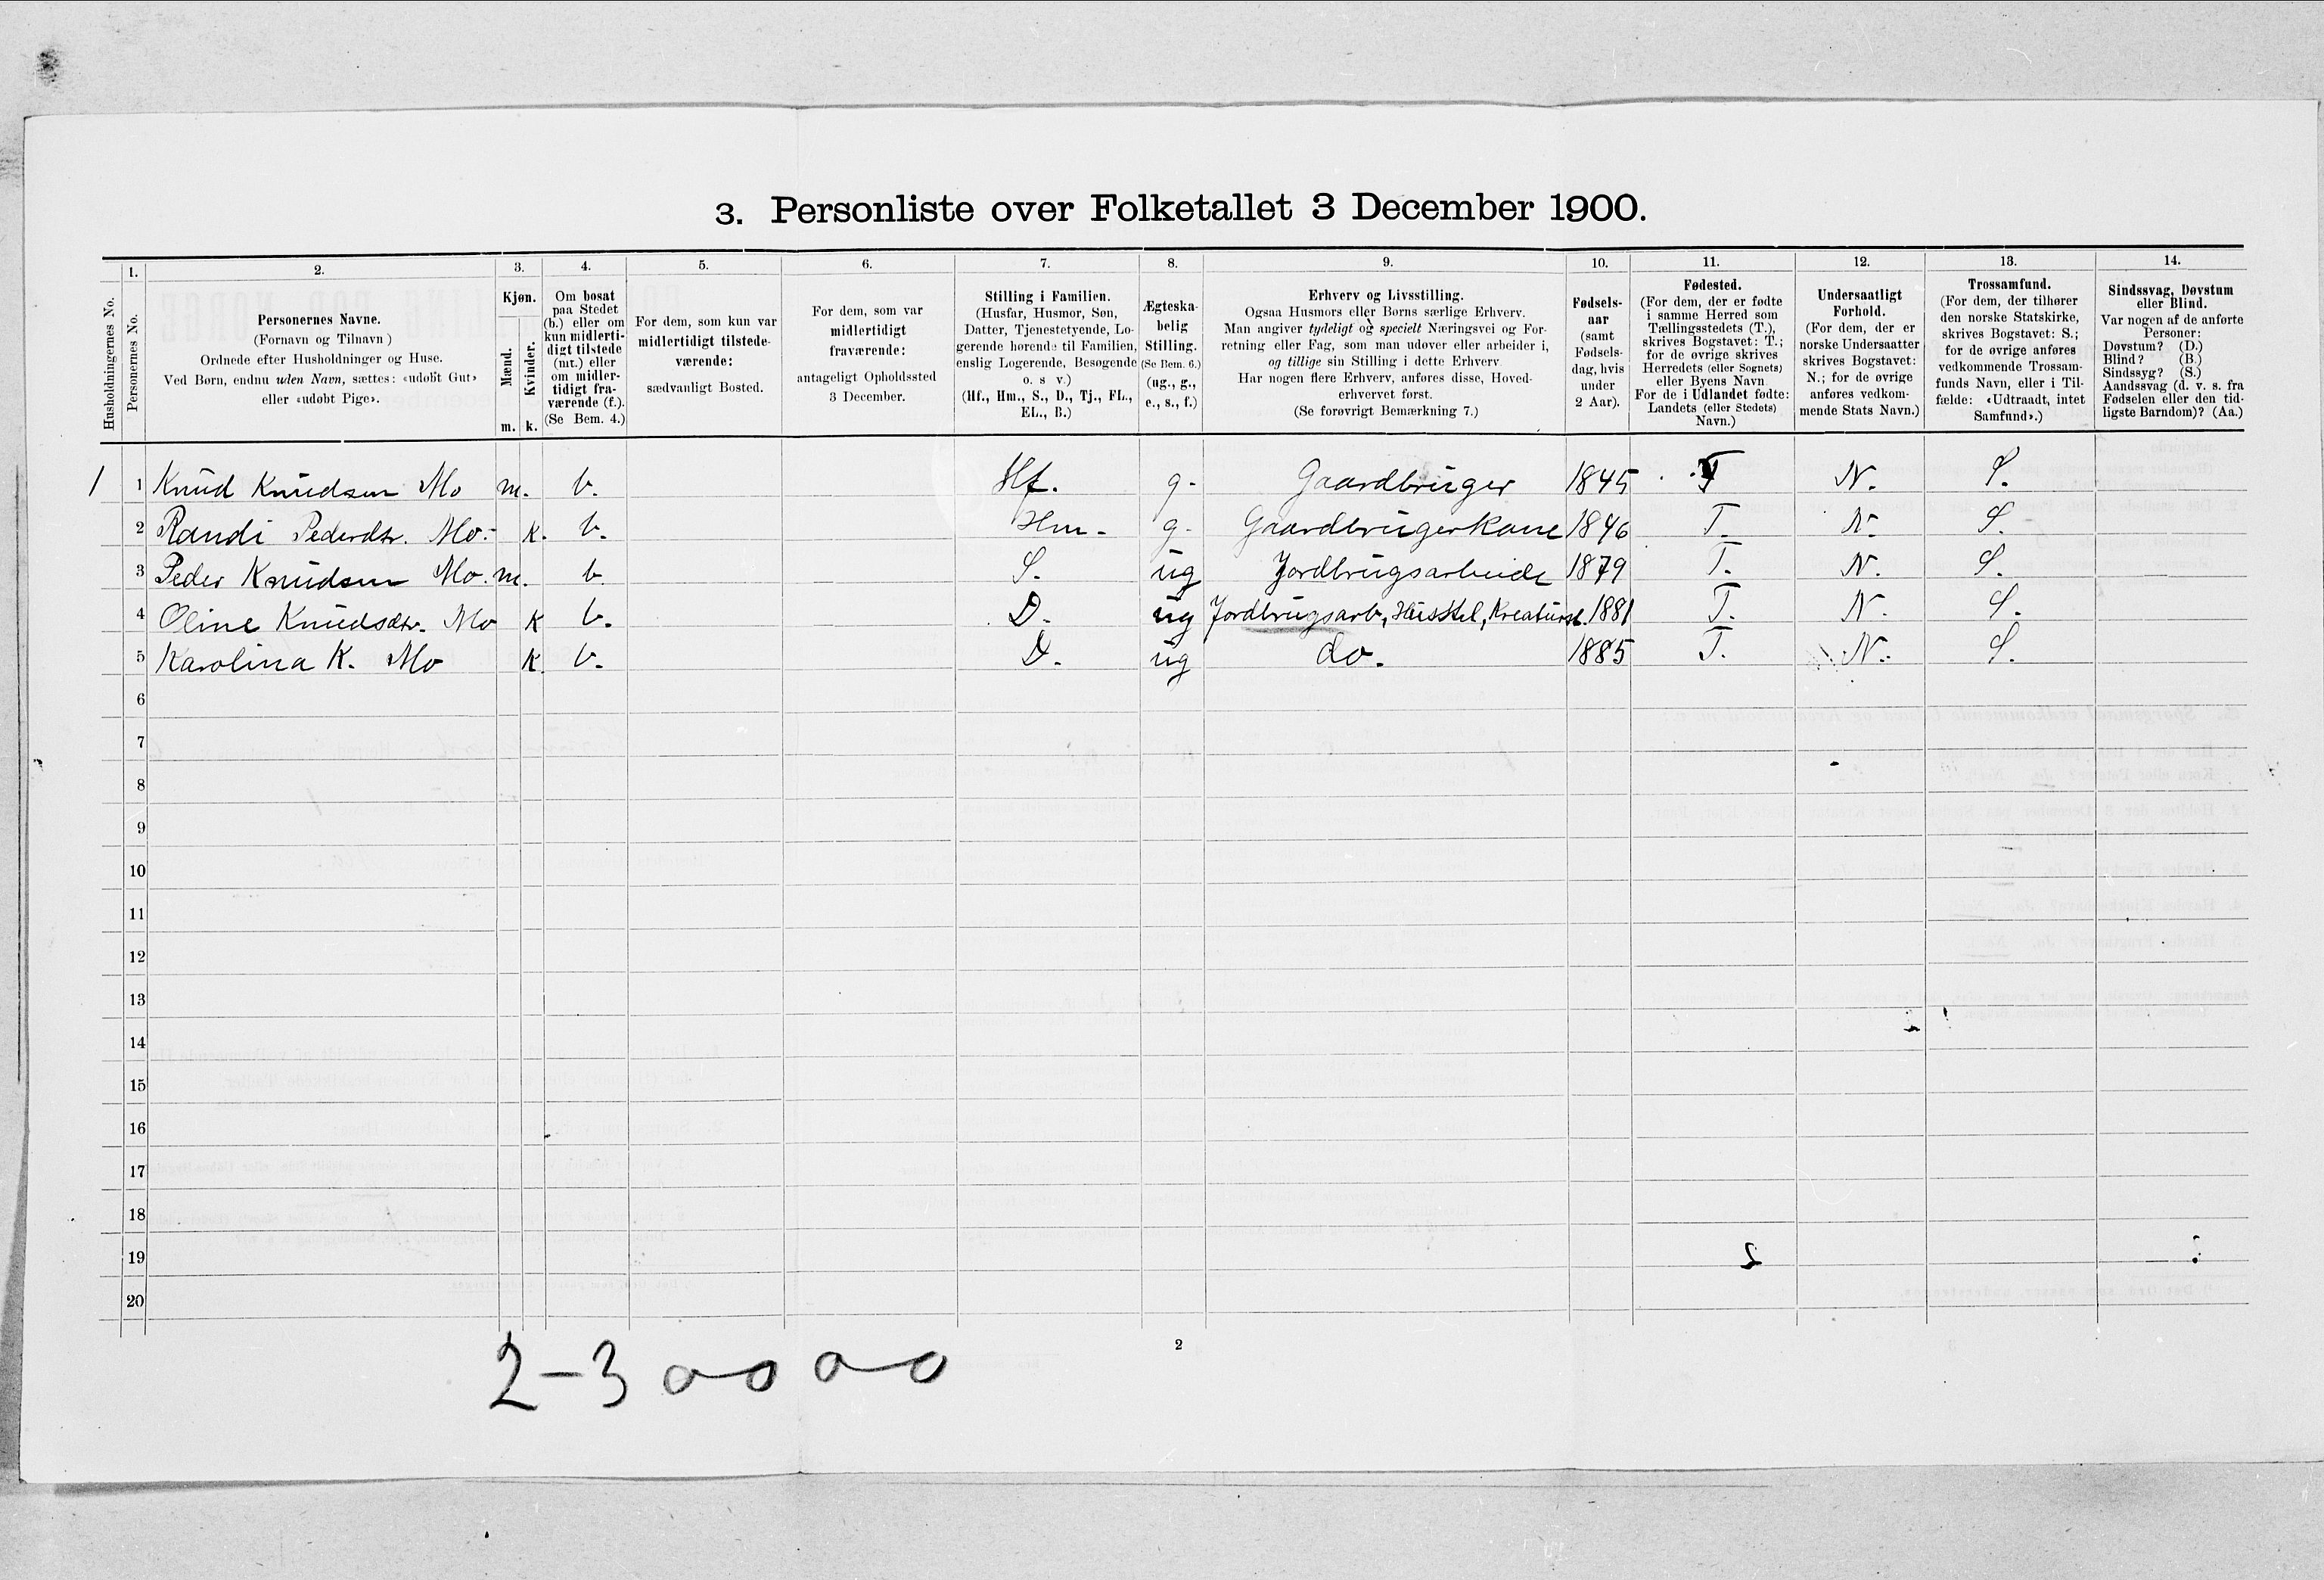 3. Personliste over Folketallet 3 December 1900.
1. 2. 3. 4. 5. 6. 7. 8. 9. 10. 11. 12. 13. 14.
Husholdningernes No.
Personernes No.
Personernes Navne.
(Fornavn og Tilnavn)
Ordnede efter Husholdninger og Huse.
Ved Børn, endnu uden Navn, sættes: «udøbt Gut»
eller «udøbt Pige».
Kjøn.
Mænd.
Kvinder.
m. k.
Om bosat
paa Stedet
(b.) eller om
kun midlerti-
digt tilstede
(mt.) eller
om midler-
tidigt fra-
værende (f.).
(Se Bem. 4.)
For dem, som kun var
midlertidigt tilstede-
værende:
sædvanligt Bosted.
For dem, som var
midlertidigt
fraværende:
antageligt Opholdssted
3 December.
Stilling i Familien.
(Husfar, Husmor, Søn,
Datter, Tjenestetyende, Lo-
gerende hørende til Familien,
enslig Logerende, Besøgende
o. s v.)
(Hf., Hm., S., D., Tj., FL.,
EL., B.)
Ægteska-
belig
Stilling.
(Se Bem. 6.)
(ug., g.,
e., s., f.)
Erhverv og Livsstilling.
Ogsaa Husmors eller Børns særlige Erhverv.
Man angiver tydeligt og specielt Næringsvei og For-
retning eller Fag, som man udøver eller arbeider i,
og tillige sin Stilling i dette Erhverv.
Har nogen flere Erhverv, anføres disse, Hoved-
erhvervet først.
(Se forøvrigt Bemærkning 7.)
Fødsels-
aar
(samt
Fødsels-
dag, hvis
under
2 Aar).
Fødested.
(For dem, der er fødte
i samme Herred som
Tællingsstedets (T.),
skrives Bogstavet: T.;
for de øvrige skrives
Herredets (eller Sognets)
eller Byens Navn
For de i Udlandet fødte:
Landets (eller Stedets)
Navn.)
Undersaatligt
Forhold.
(For dem, der er
norske Undersaatter
skrives Bogstavet:
N.; for de øvrige
anføres vedkom-
mende Stats Navn.)
Trossamfund.
(For dem, der tilhører
den norske Statskirke,
skrives Bogstavet: S.;
for de øvrige anføres
vedkommende Trossam-
funds Navn, eller i Til-
fælde: «Udtraadt, intet
Samfund».)
Sindssvag, Døvstum
eller Blind.
Var nogen af de anførte
Personer:
Døvstum? (D.)
Blind? (B.)
Sindssyg? (S.)
Aandssvag (d. v. s. fra
Fødselen eller den tid-
ligste Barndom)? (Aa.)
1 1 Knud Knudsen Mo m. b. Hf. g. Gaardbruger 1845 T N. S.
2 Randi Pedersdtr. Mo. k. b. Hm. g. Gaardbrugerkone 1846 T. N. S.
3 Peder Knudsen Mo. m. b. S. ug Jordbrugsarbeide 1879 T. N. S.
4 Oline Knudsdtr. Mo k b. D. ug Jordbrugsarb, Husstel, Kreaturst. 1881 T. N. S.
5 Karolina K. Mo k. b. D. ug do. 1885 T. N. S.
6
7
8
9
10
11
12
13
14
15
16
17
18
19
20
2
2-3